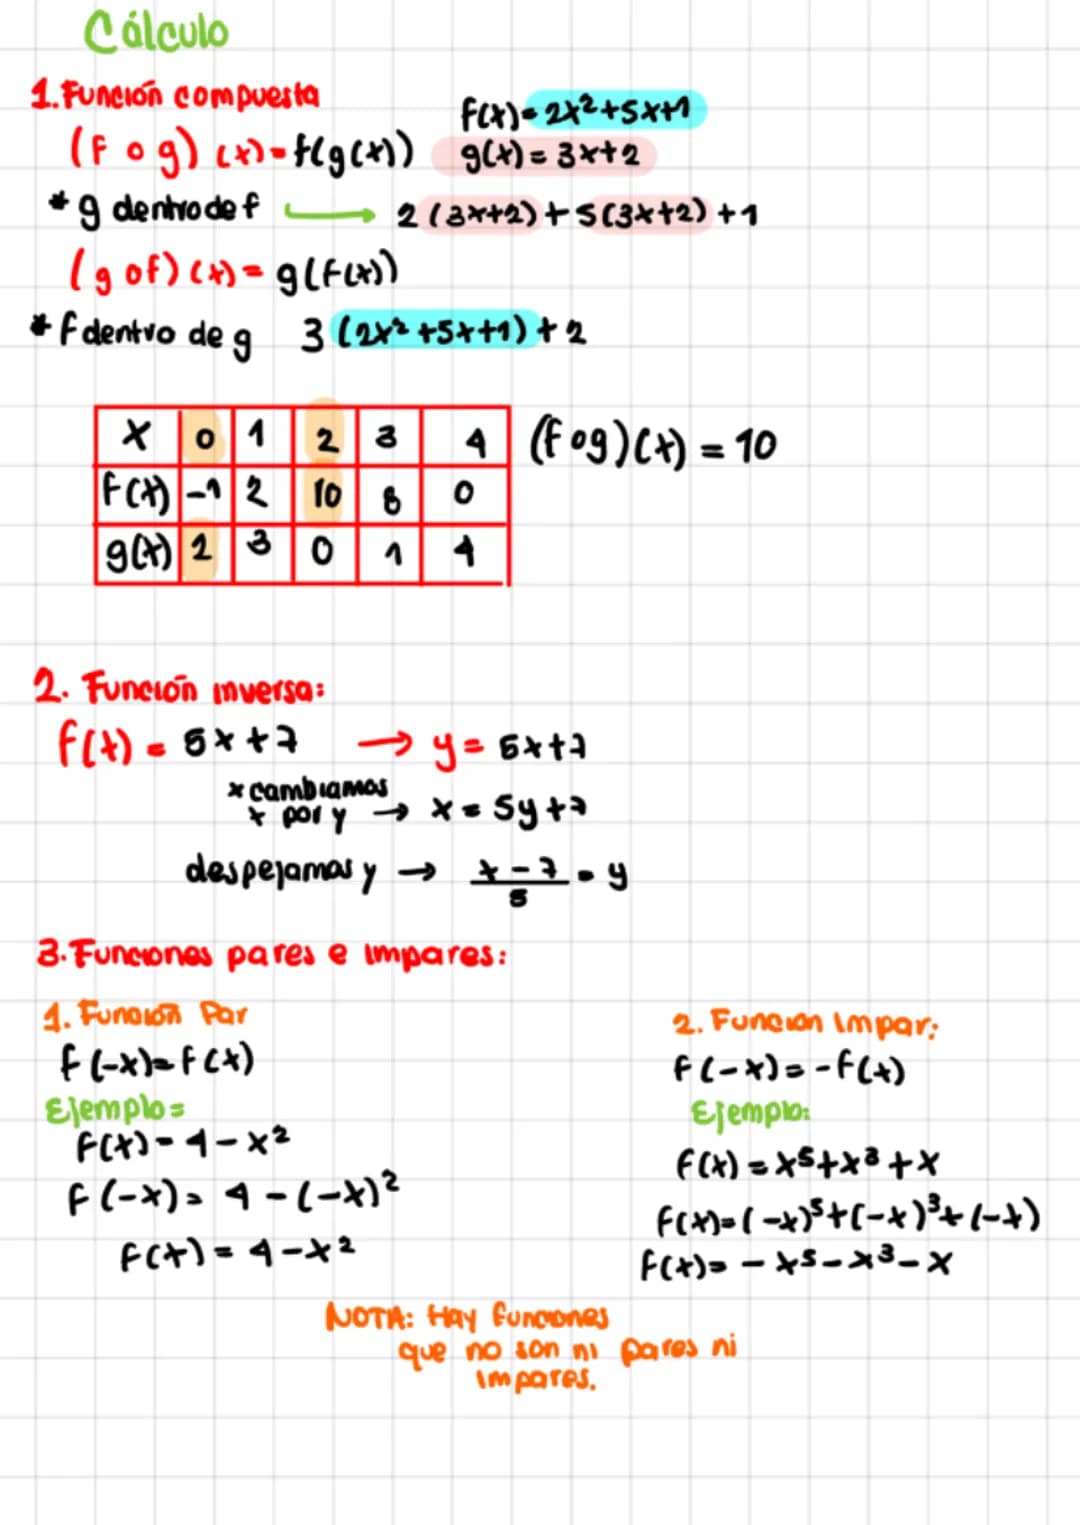 Cálculo
1. Función compuesta
f(x) = 2x²+5x+1
(f o g) (x) = f(g(x))
g(x) = 3x+2
* g dentro de f → 2 (3x+2) + 5(3x+2) + 1
(g o f) (x) = g(f(x))
* f dentro de g 3 (2x² +5x+1) + 2
x 0 1 2 3 4
(f o g)(x) = 10
f(x) -1 2 10 8 0
g(x) 2 3 0 1 4
2. Función inversa:
f(x) = 5x+7 → y = 5x+7
* cambiamos
x por y → x = 5y+7
despejamos y → x - 7 / 5 = y
3. Funciones pares e impares:
1. Función Par
f(-x) = f(x)
Ejemplo=
f(x) = 4 - x²
f(-x) = 4 - (-x)²
f(x) = 4 - x²
2. Funcion Impar:
f(-x) = -f(x)
Ejemplo:
f(x) = x⁵+x³+x
f(x) = (-x)⁵+(-x)³+(-x)
f(x) = -x⁵-x³-x
NOTA: Hay funciones
que no son ni pares ni
impares.